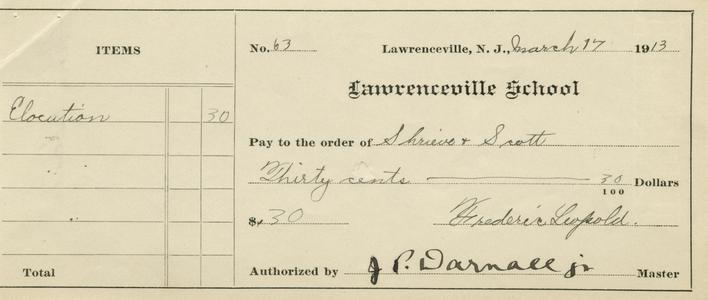 ITEMS
Elocution 30
Total
No. 63 Lawrenceville, N. J., March 17 1913
Lawrenceville School
Pay to the order of Shrieve & Scott
Thirty cents 30/100 Dollars
$.30 Frederic Leopold.
Authorized by J. P. Darnall jr Master